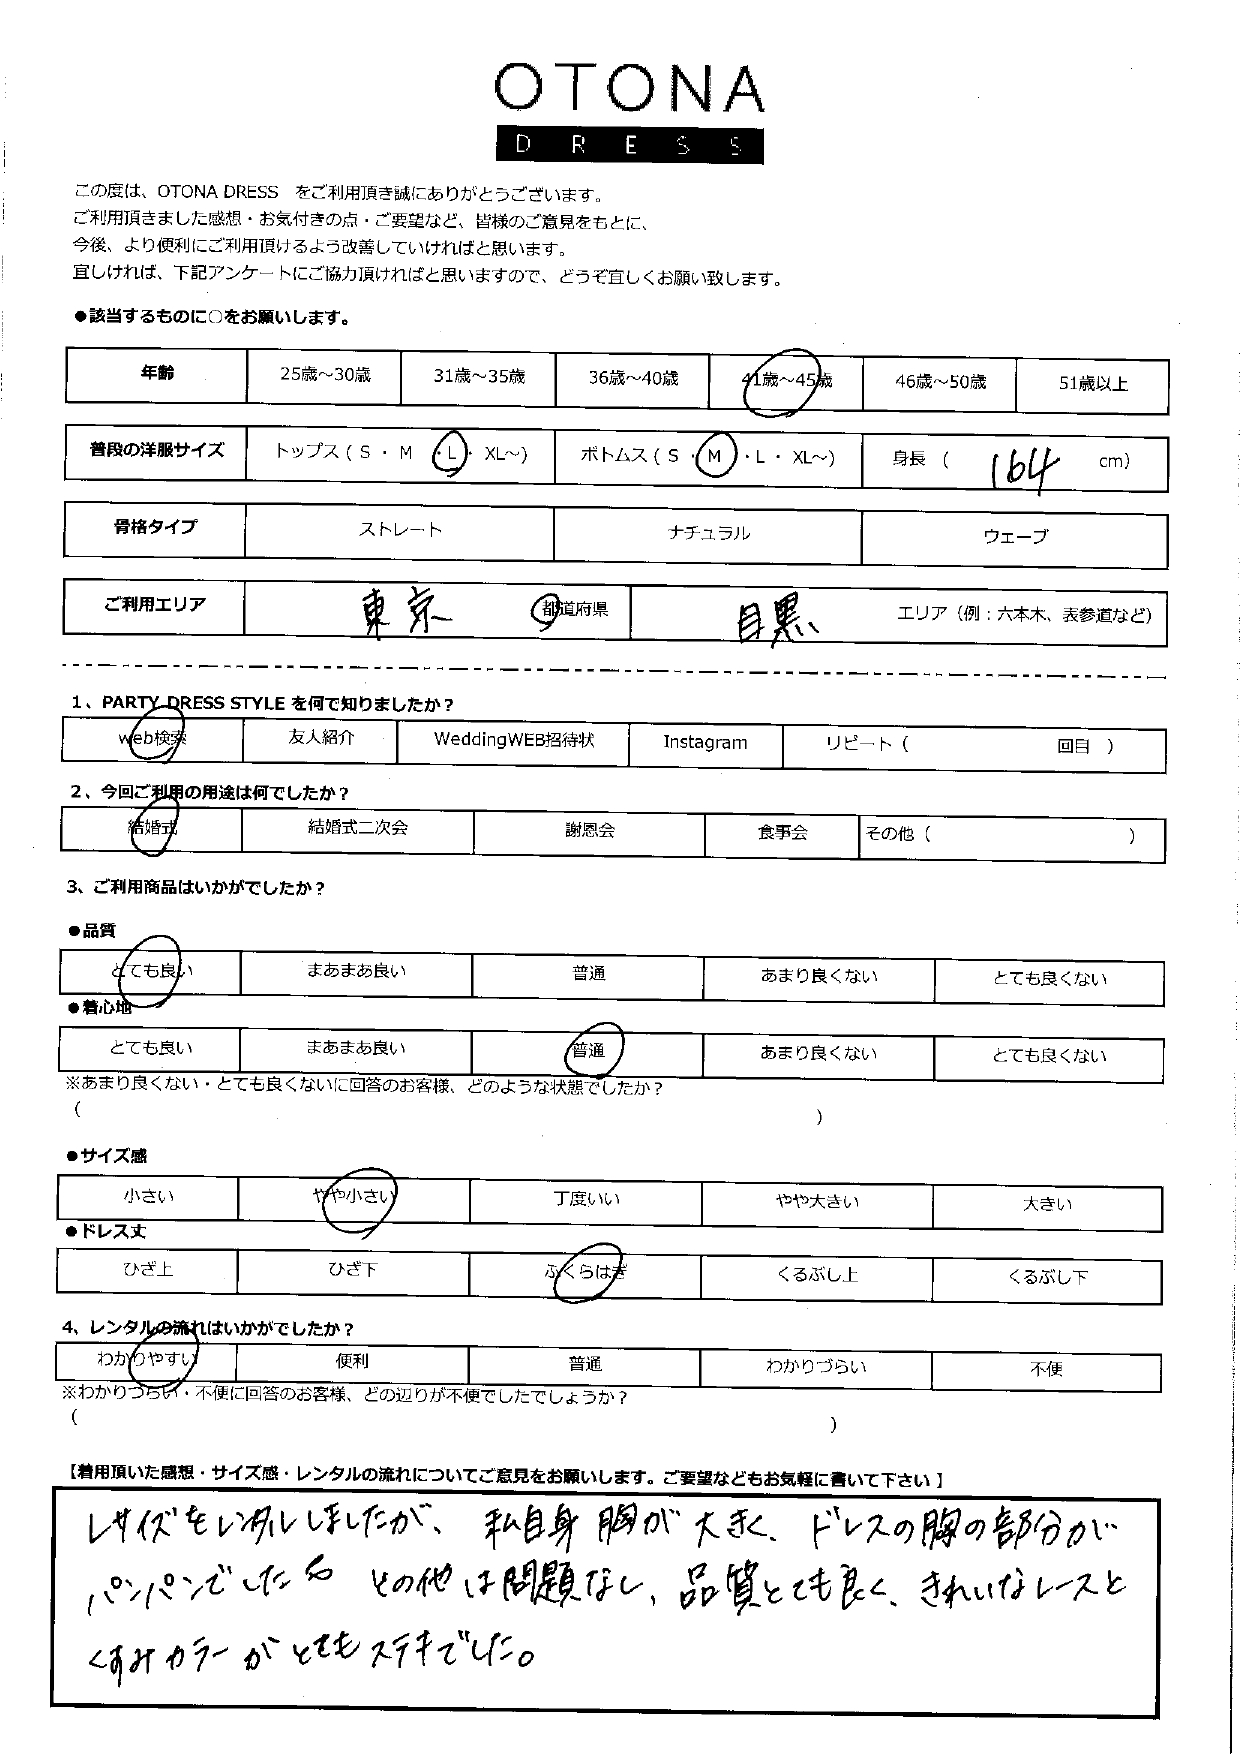 OTONA
DRESS
この度は、OTONA DRESS　をご利用頂き誠にありがとうございます。
ご利用頂きました感想・お気付きの点・ご要望など、皆様のご意見をもとに、
今後、より便利にご利用頂けるよう改善していければと思います。
宜しければ、下記アンケートにご協力頂ければと思いますので、どうぞ宜しくお願い致します。
●該当するものに○をお願いします。
年齢 25歳～30歳 31歳～35歳 36歳～40歳 41歳～45歳 46歳～50歳 51歳以上
普段の洋服サイズ トップス（ S ・ M ・L・ XL～） ボトムス（ S ・M ・L ・ XL～） 身長 （ 164 cm）
骨格タイプ ストレート ナチュラル ウェーブ
ご利用エリア 東京 都道府県 目黒 エリア（例：六本木、表参道など）
1、PARTY DRESS STYLE を何で知りましたか？
web検索 友人紹介 WeddingWEB招待状 Instagram リピート（ 回目 ）
2、今回ご利用の用途は何でしたか？
結婚式 結婚式二次会 謝恩会 食事会 その他（ ）
3、ご利用商品はいかがでしたか？
●品質
とても良い まあまあ良い 普通 あまり良くない とても良くない
●着心地
とても良い まあまあ良い 普通 あまり良くない とても良くない
※あまり良くない・とても良くないに回答のお客様、どのような状態でしたか？
（ ）
●サイズ感
小さい やや小さい 丁度いい やや大きい 大きい
●ドレス丈
ひざ上 ひざ下 ふくらはぎ くるぶし上 くるぶし下
4、レンタルの流れはいかがでしたか？
わかりやすい 便利 普通 わかりづらい 不便
※わかりづらい・不便に回答のお客様、どの辺りが不便でしたでしょうか？
（ ）
【着用頂いた感想・サイズ感・レンタルの流れについてご意見をお願いします。ご要望などもお気軽に書いて下さい】
Lサイズをレンタルしましたが、私自身胸が大きく、ドレスの胸の部分が
パンパンでした その他は問題なし、品質とても良く、きれいなレースと
くすみカラーがとてもステキでした。